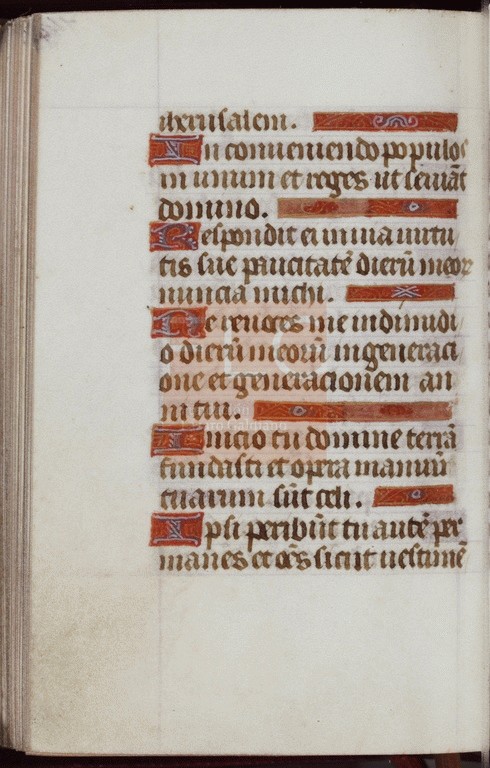 iherusalem.
In conveniendo populos
in unum et reges ut serviāt
domino.
Respondit ei in via virtu
tis sue paucitatē dierū meor
nuncia michi.
Ne revoces me in dimidi
o dierū meorū in generaci
one et generacionem an
ni tui.
Inicio tu domine terrā
fundasti et opera manuū
tuarum sūt celi.
Ipsi peribūt tu autē per
manes et oēs sicut vestimē